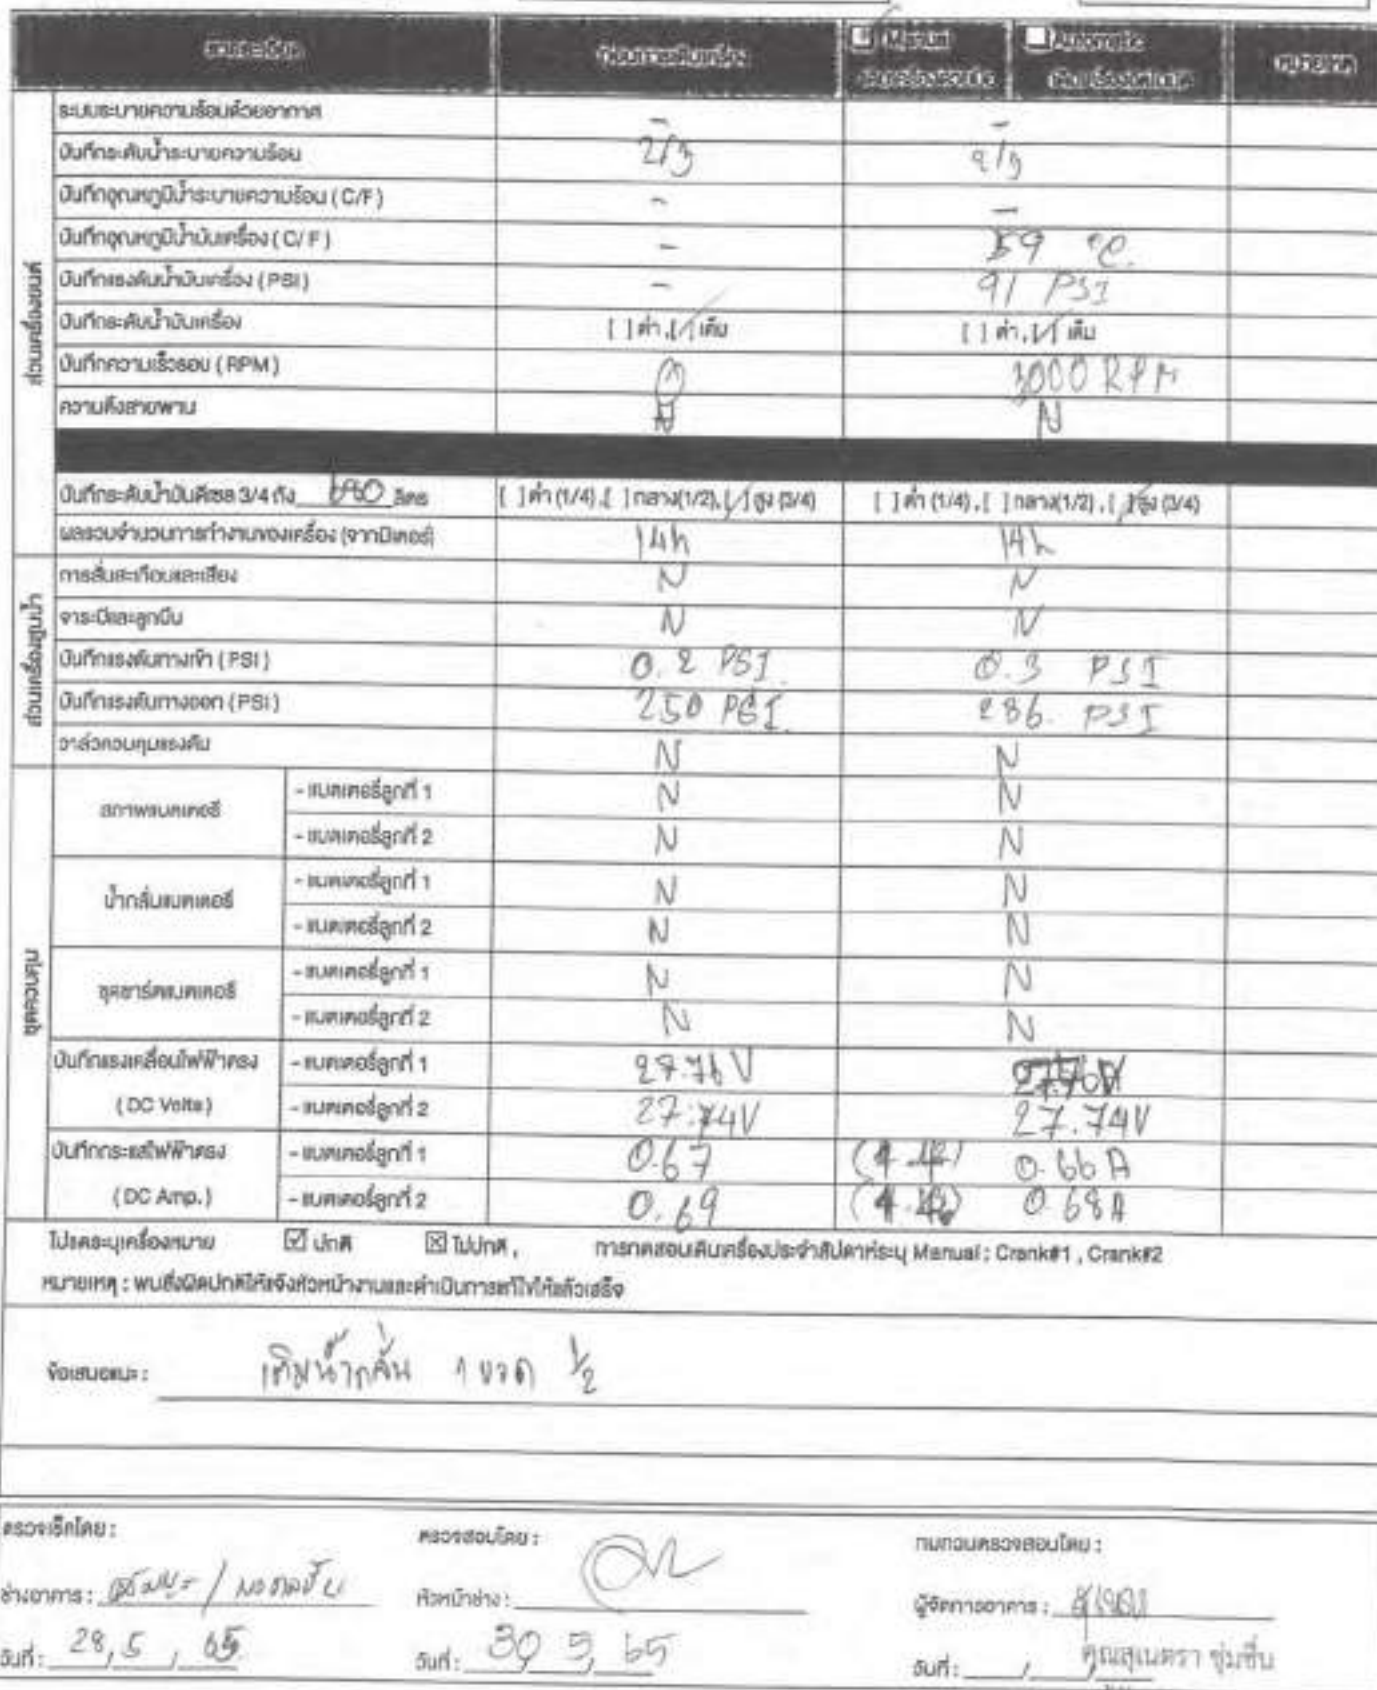 รายละเอียด ก่อนการเดินเครื่อง [/] Manual [ ] Automatic หมายเหตุ
ส่วนเครื่องยนต์
ระบบระบายความร้อนด้วยอากาศ - -
บันทึกระดับน้ำระบายความร้อน 2/3 2/3
บันทึกอุณหภูมิน้ำระบายความร้อน (C/F) - -
บันทึกอุณหภูมิน้ำมันเครื่อง (C/F) - 59 °C.
บันทึกแรงดันน้ำมันเครื่อง (PSI) - 91 PSI
บันทึกระดับน้ำมันเครื่อง [ ] ต่ำ, [/] เต็ม [ ] ต่ำ, [/] เต็ม
บันทึกความเร็วรอบ (RPM) 0 3000 RPM
ความตึงสายพาน N N
บันทึกระดับน้ำมันดีเซล 3/4 ถัง 680 ลิตร [ ] ต่ำ (1/4), [ ] กลาง(1/2), [/] สูง (3/4) [ ] ต่ำ (1/4), [ ] กลาง(1/2), [/] สูง (3/4)
ผลรวมจำนวนการทำงานของเครื่อง (จากมิเตอร์) 14h 14h
ส่วนเครื่องสูบน้ำ
การสั่นสะเทือนและเสียง N N
จาระบีและลูกปืน N N
บันทึกแรงดันทางเข้า (PSI) 0.2 PSI 0.3 PSI
บันทึกแรงดันทางออก (PSI) 250 PSI 286 PSI
วาล์วควบคุมแรงดัน N N
ชุดควบคุม
สภาพแบตเตอรี่ - แบตเตอรี่ลูกที่ 1 N N
- แบตเตอรี่ลูกที่ 2 N N
น้ำกลั่นแบตเตอรี่ - แบตเตอรี่ลูกที่ 1 N N
- แบตเตอรี่ลูกที่ 2 N N
ชุดชาร์ตแบตเตอรี่ - แบตเตอรี่ลูกที่ 1 N N
- แบตเตอรี่ลูกที่ 2 N N
บันทึกแรงเคลื่อนไฟฟ้าตรง - แบตเตอรี่ลูกที่ 1 27.76 V 27.76V
(DC Volts) - แบตเตอรี่ลูกที่ 2 27.74V 27.74V
บันทึกกระแสไฟฟ้าตรง - แบตเตอรี่ลูกที่ 1 0.67 0.66 A
(DC Amp.) - แบตเตอรี่ลูกที่ 2 0.69 0.68 A
โปรดระบุเครื่องหมาย ☑ ปกติ ☒ ไม่ปกติ, การทดสอบเดินเครื่องประจำสัปดาห์ระบุ Manual : Crank#1 , Crank#2
หมายเหตุ : พบสิ่งผิดปกติให้แจ้งหัวหน้างานและดำเนินการแก้ไขให้แล้วเสร็จ
ข้อเสนอแนะ : เติมน้ำกลั่น 1 ขวด 1/2
ตรวจเช็คโดย : ตรวจสอบโดย : ทบทวนตรวจสอบโดย :
ช่างอาคาร : หัวหน้าช่าง : ผู้จัดการอาคาร :
คุณสุเนตรา ชุ่มชื่น
วันที่ : 28, 5 / 65 วันที่ : 30 5, 65 วันที่ : / /